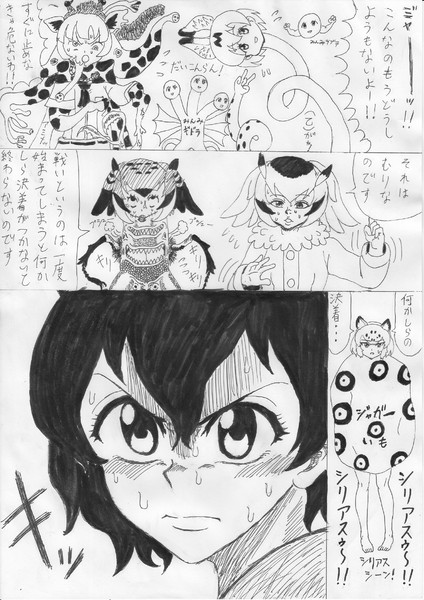 ジャーーー!!
こんなのもうどうし
ようもないよー!!
みんみラブワ
だいこんらん!
みんみ
ギドラ
すぐに止めな
きゃ危ないわ!!
それは
むりな
のです
戦いというのは一度
始まってしまうと何か
しら決着がつかないと
終わらないのです
ギリッ
ギリッ
何かしらの
決着・・・
ジャガー
いも
シリアスゥ〜!!
シリアスゥ〜!!
シリアス
シーン!
キッ